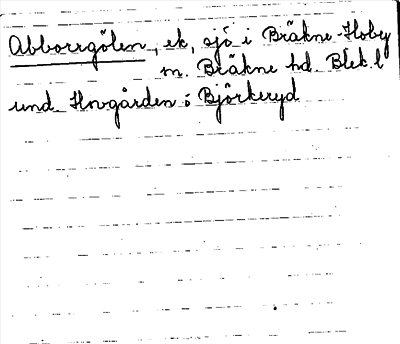 Abborrgölen, ek, sjö i Bräkne-Hoby
sn. Bräkne hd. Blek. l
und. Hovgården o Björkeryd